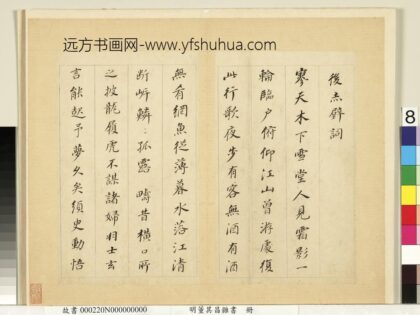 远方书画网-www.yfshuhua.com
後赤壁詞
寒天木下雪堂人見霜影一
輪臨户俯仰江山曾游處復
此行歌夜步有客無酒有酒
無肴網魚從薄暮水落江清
断岍鳞〻孤露 畴昔横口所
之披龍嶺虎不謀諸婦羽士玄
言能起予夢久矣須臾動悟
8
故書 000220N000000000 明董其昌雜書 冊